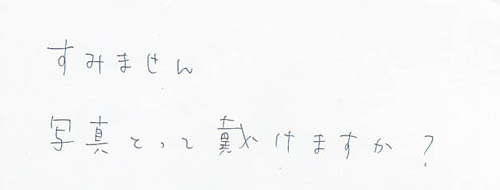 すみません
写真とって戴けますか?